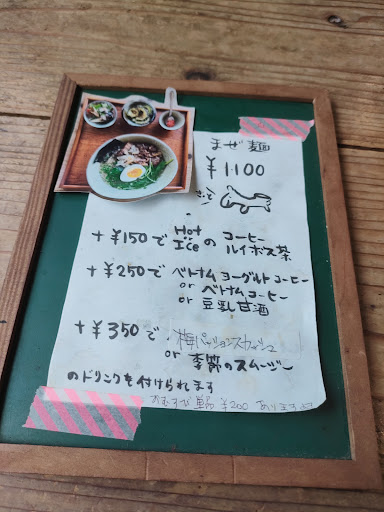 まぜ麺
¥1100
+¥150で Hot or Iceの コーヒー ルイボス茶
+¥250で ベトナムヨーグルトコーヒー
or ベトナムコーヒー
or 豆乳甘酒
+¥350で 梅パッションスカッシュ
or 季節のスムージー
のドリンクも付けられます
おむすび 単品 ¥200 あります